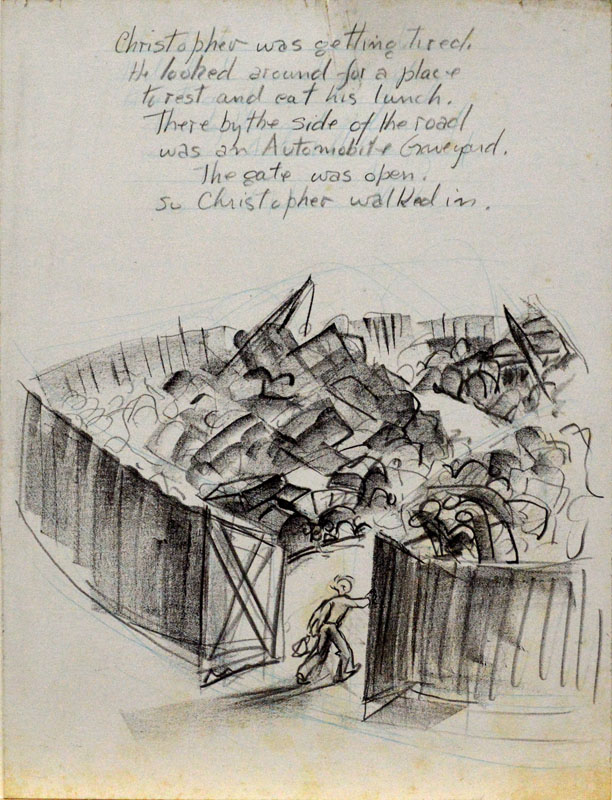 Christopher was getting tired.
He looked around for a place
to rest and eat his lunch.
There by the side of the road
was an Automobile Graveyard.
The gate was open.
so Christopher walked in.